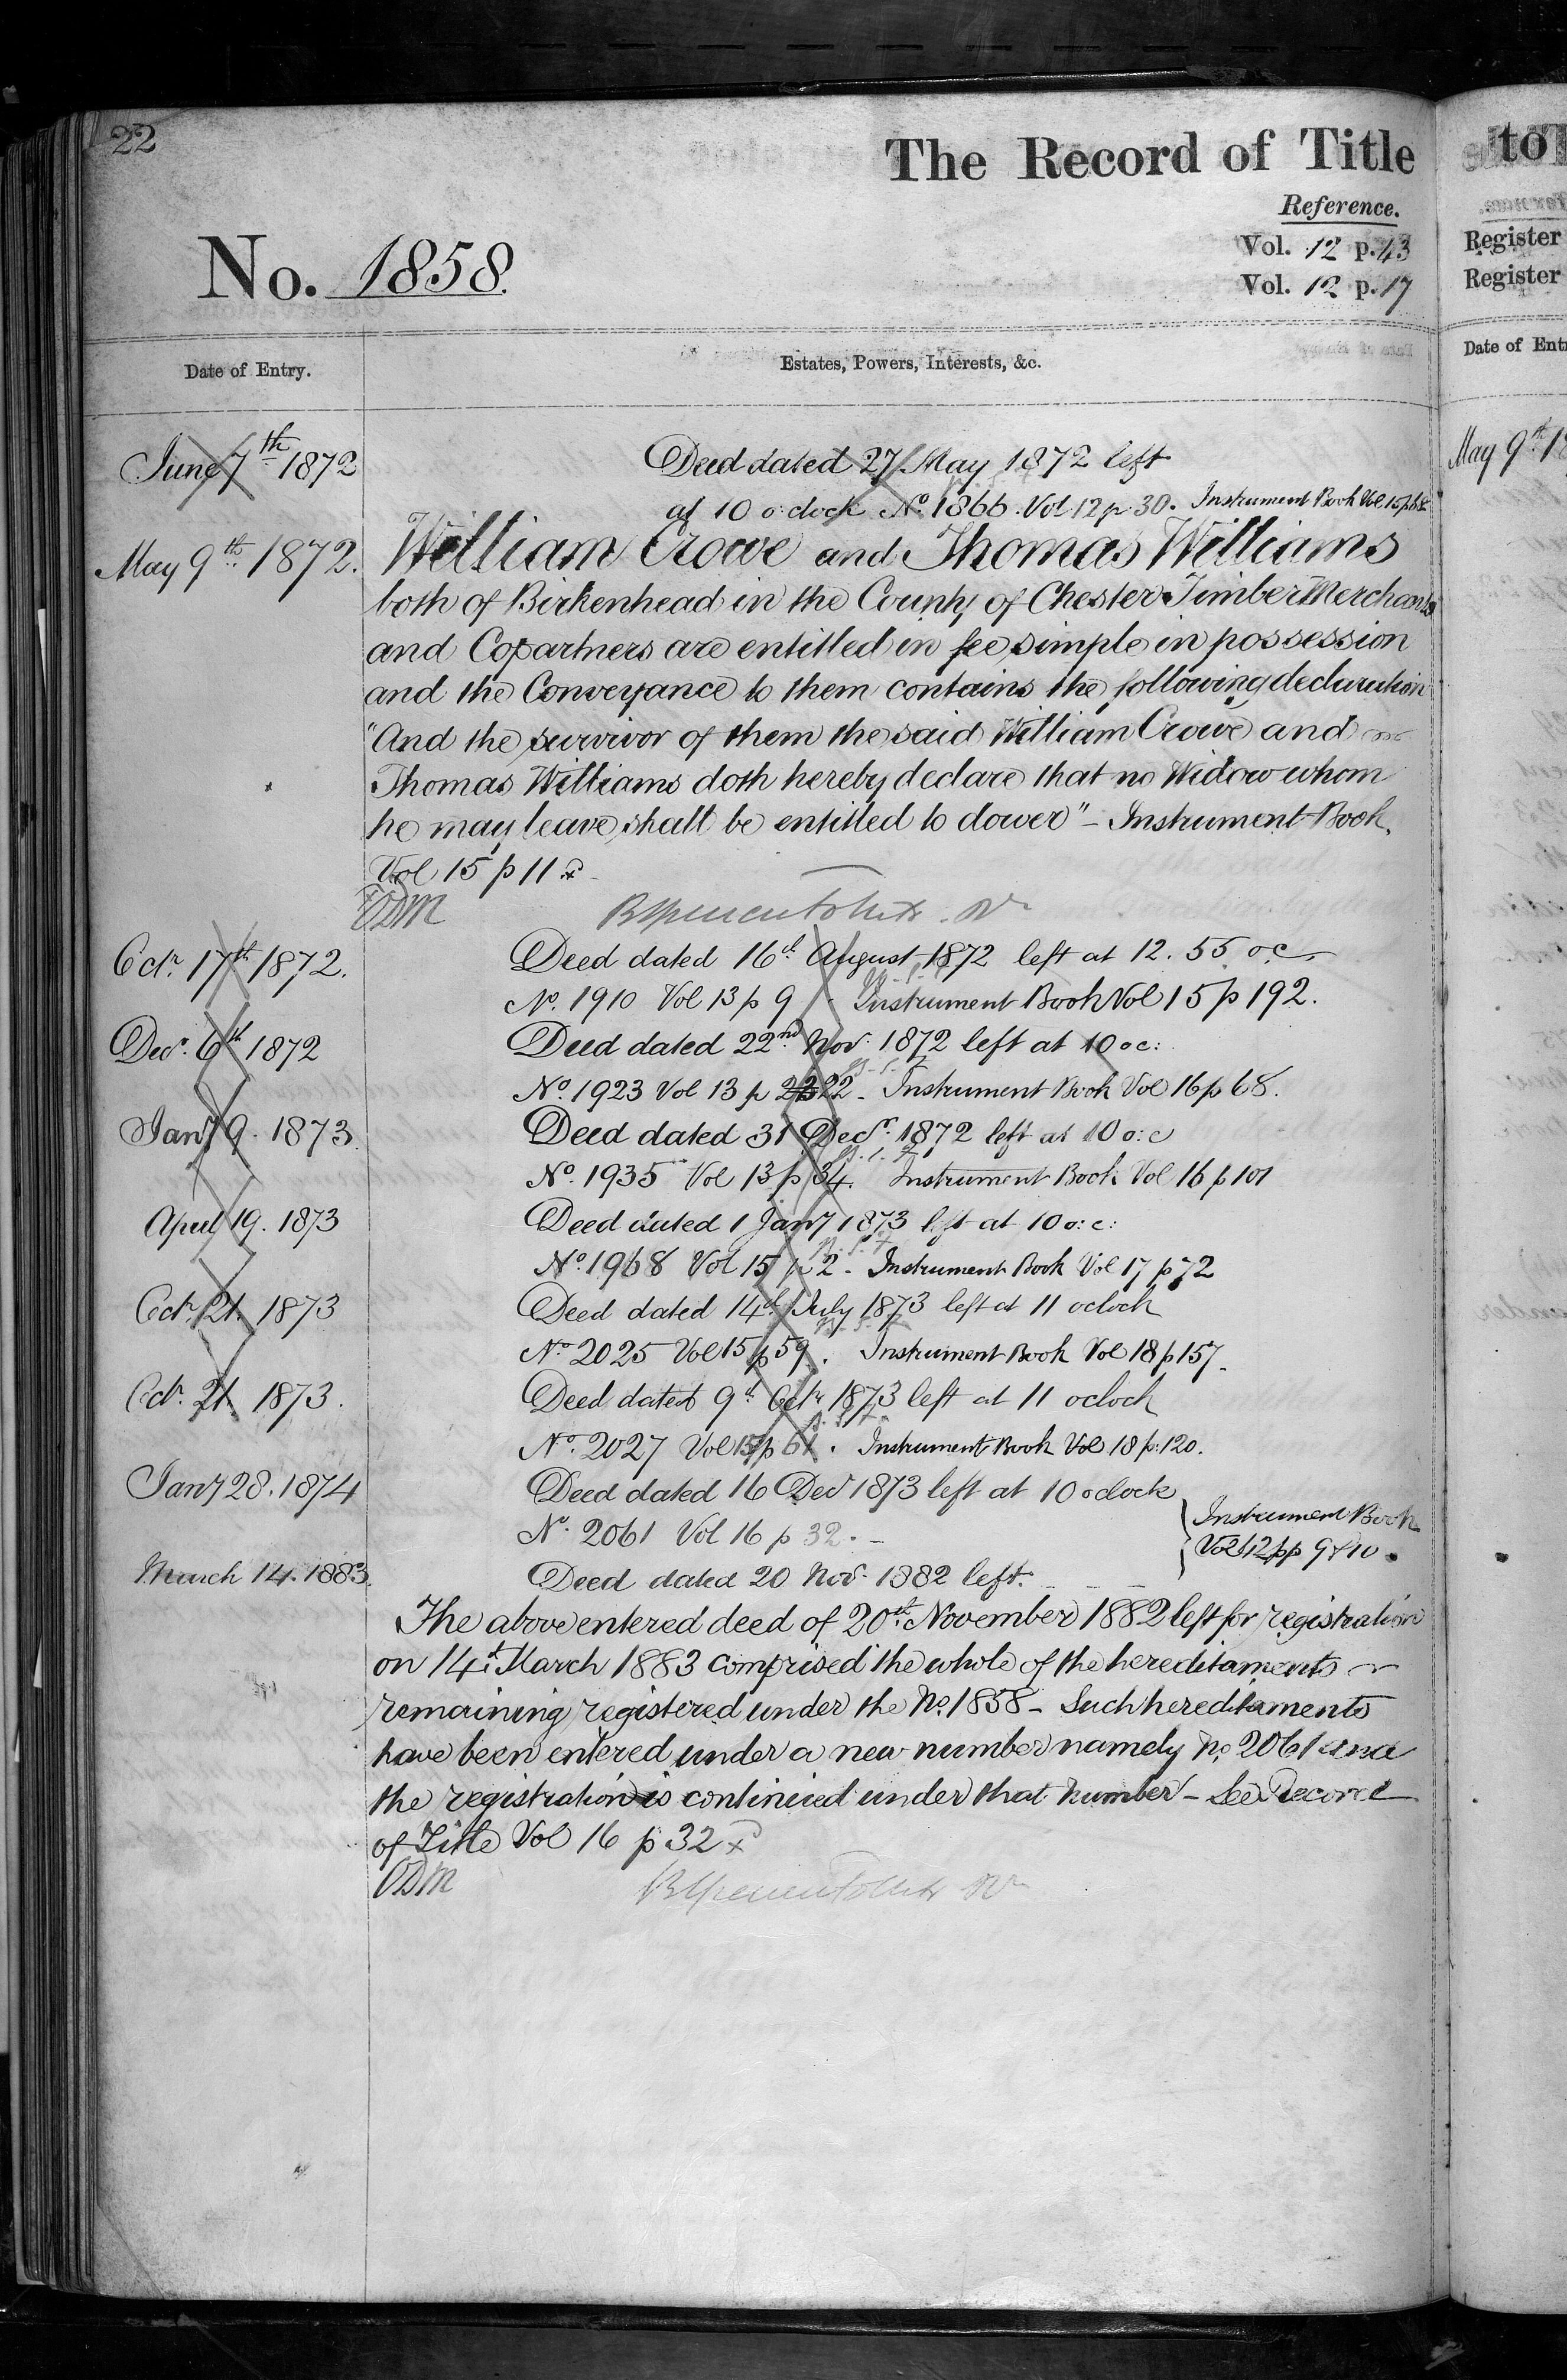 22
The Record of Title
Reference.
No. 1858.
Vol. 12 p. 43
Vol. 12 p. 17
Date of Entry.
Estates, Powers, Interests, &c.
June 7th 1872
Deed dated 27 May 1872 left
at 10 o'clock No. 1866. Vol 12 p. 30. Instrument Book Vol 15 p
May 9th 1872.
William Crowe and Thomas Williams
both of Birkenhead in the County of Chester Timber Merchants
and Copartners are entitled in fee simple in possession
and the Conveyance to them contains the following declaration
"And the survivor of them the said William Crowe and
Thomas Williams doth hereby declare that no Widow whom
he may leave shall be entitled to dower" – Instrument Book
Vol 15 p 11
Octr. 17th 1872.
Deed dated 16th August 1872 left at 12. 55 o.c.
No. 1910 Vol 13 p 9 Instrument Book Vol 15 p 192.
Decr. 6th 1872
Deed dated 22nd Novr. 1872 left at 10 o c:
No. 1923 Vol 13 p 22 - Instrument Book Vol 16 p 68.
Jany 9. 1873
Deed dated 31 Decr. 1872 left at 10 o: c
No. 1935 Vol 13 p 34. Instrument Book Vol 16 p 101
April 19. 1873
Deed dated 1 Jany 1873 left at 10 o: c:
No. 1968 Vol 15 p 2 - Instrument Book Vol 17 p 72
Octr. 21. 1873
Deed dated 14th July 1873 left at 11 oclock
No. 2025 Vol 15 p 59. Instrument Book Vol 18 p 157.
Octr. 21. 1873.
Deed dated 9th Octr 1873 left at 11 oclock
No. 2027 Vol 15 p 61. Instrument Book Vol 18 p: 120.
Jany 28. 1874
Deed dated 16 Decr 1873 left at 10 oclock
No. 2061 Vol 16 p 32. –
Instrument Book
pp 9 & 10
March 14. 1883.
Deed dated 20 Novr. 1882 left.
The above entered deed of 20th November 1882 left for registration
on 14th March 1883 comprised the whole of the hereditaments
remaining registered under the No. 1858 – Such hereditaments
have been entered under a new number namely No. 2061 and
the registration is continued under that number – See Record
of Title Vol 16 p 32
to
Register
Register
Date of Ent
May 9th 18